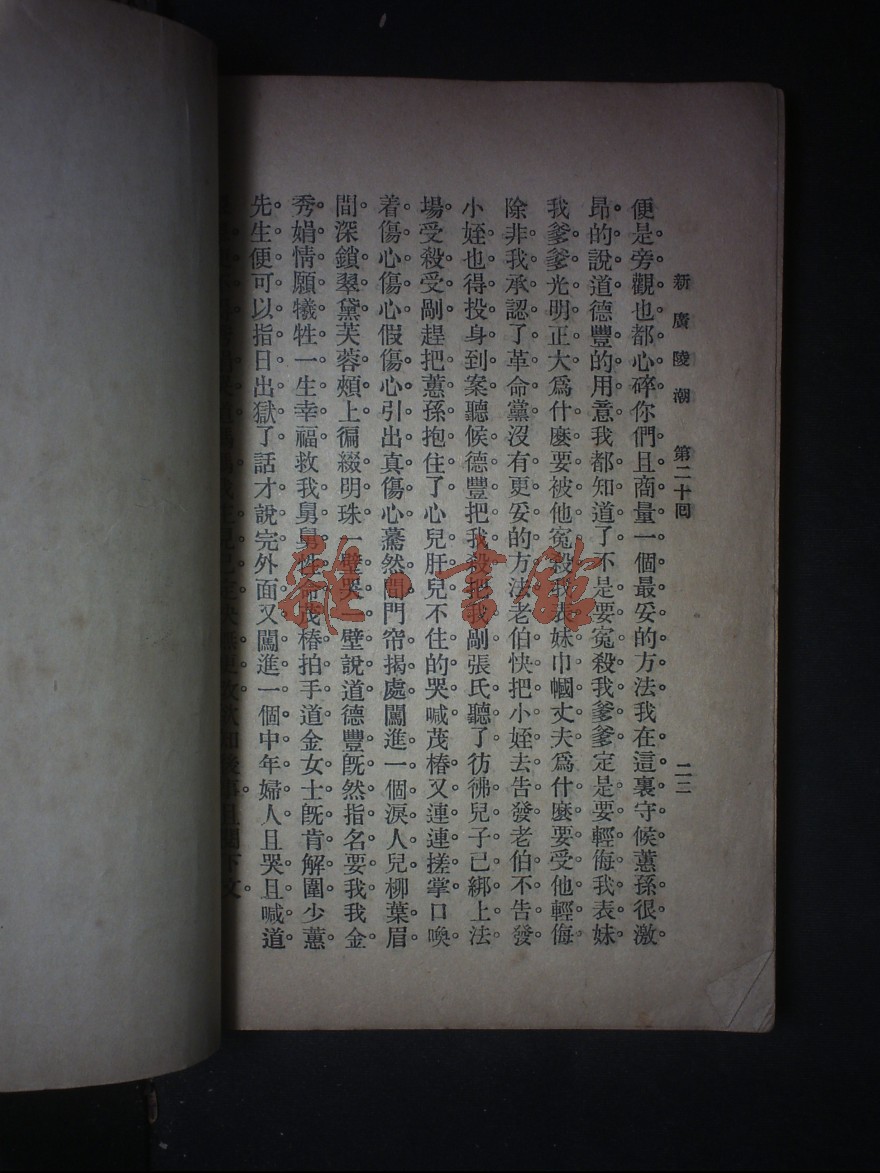 新廣陵潮　第二十回　二二
便是旁觀也都心碎你們且商量一個最妥的方法我在這裏守候蕙孫很激
昂的說道德豐的用意我都知道了不是要冤殺我爹爹定是要輕侮我表妹
我爹爹光明正大爲什麽要被他冤殺我表妹巾幗丈夫爲什麽要受他輕侮
除非我承認了革命黨沒有更妥的方法老伯快把小姪去告發老伯不告發
小姪也得投身到案聽候德豐把我殺把我剮張氏聽了彷彿兒子已綁上法
場受殺受剮趕把蕙孫抱住了心兒肝兒不住的哭喊茂椿又連連搓掌口喚
着傷心傷心假傷心引出真傷心驀然間門帘揭處闖進一個淚人兒柳葉眉
間深鎖翠黛芙蓉頰上徧綴明珠一壁哭一壁說道德豐旣然指名要我我金
秀娟情願犧牲一生幸福救我舅舅性命茂椿拍手道金女士旣肯解圍少蕙
先生便可以指日出獄了話才說完外面又闖進一個中年婦人且哭且喊道
下文
雜·書館